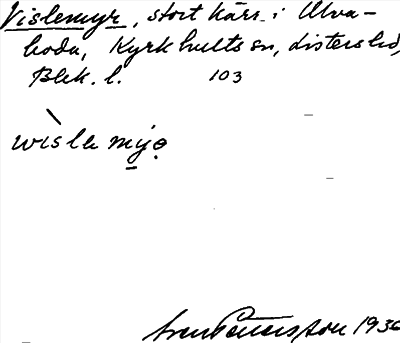 Vislemyr, stort kärr i Ulva-
boda, Kyrkhults sn, Listers hd,
Blek. l. 103
wìslemyọ
Sven Pettersson 1936